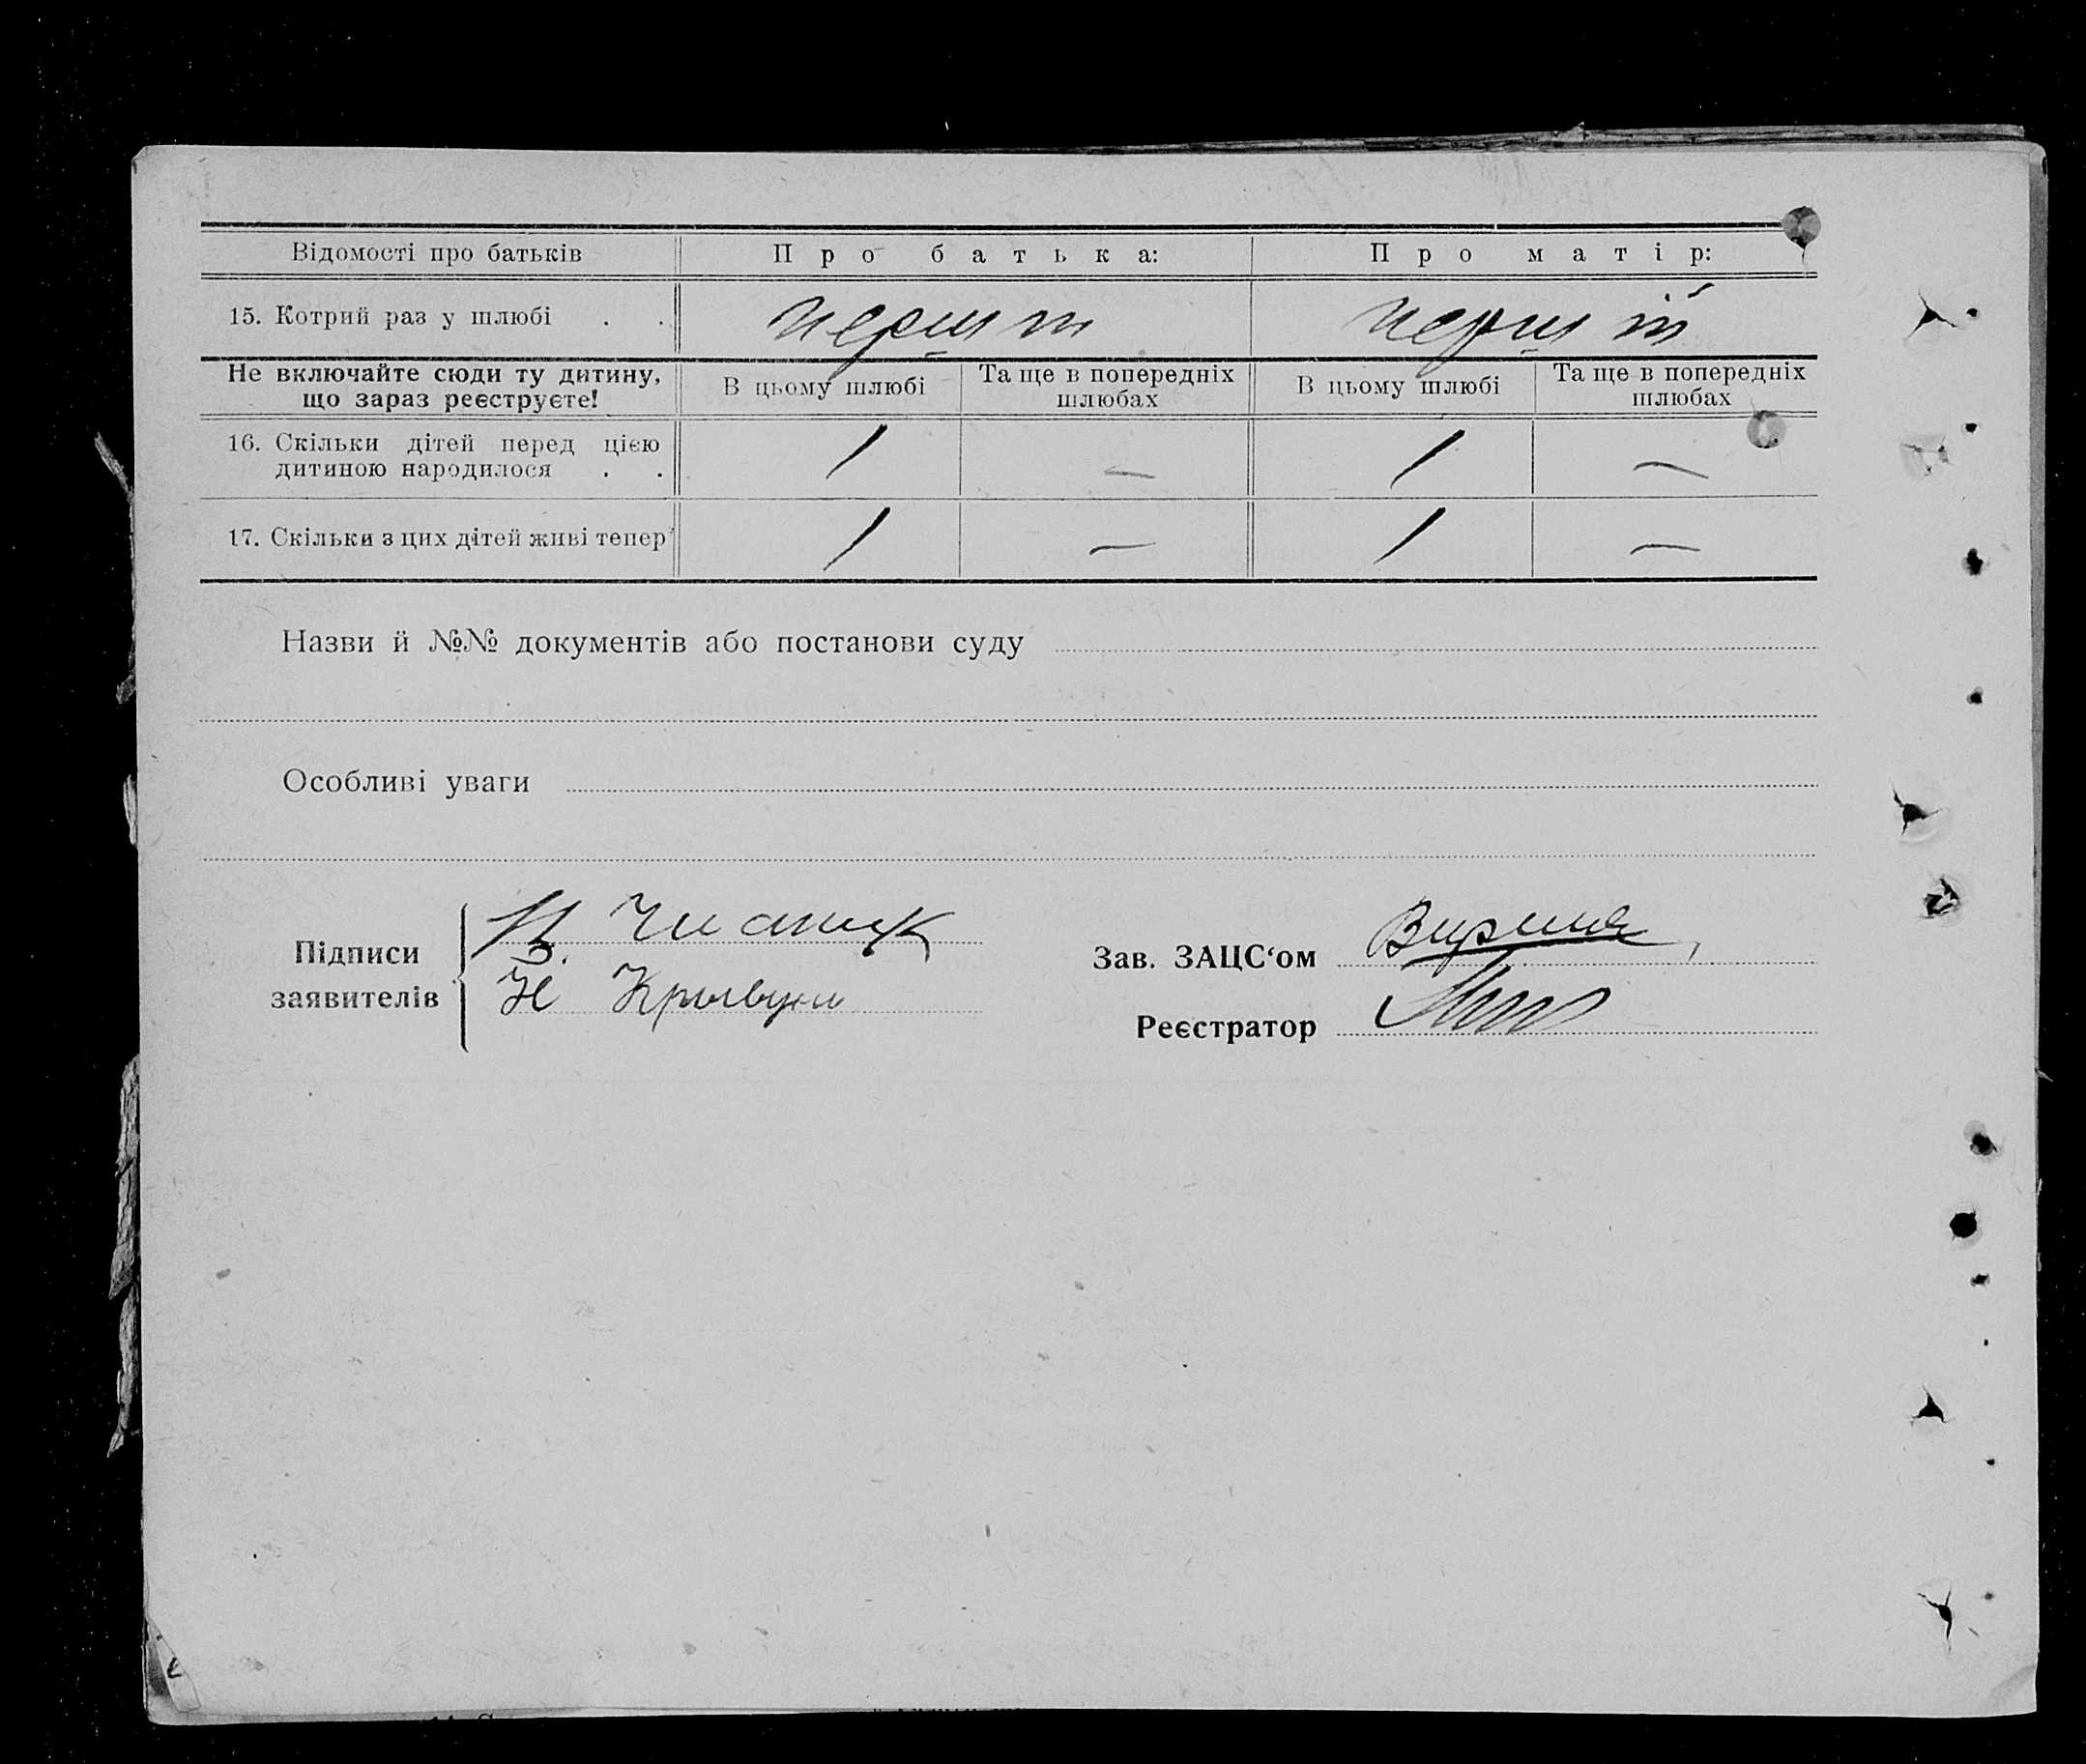 Відомості про батьків Про батька: Про матір:
15. Котрий раз у шлюбі . . перший перший
Не включайте сюди ту дитину, що зараз реєструєте! В цьому шлюбі Та ще в попередніх шлюбах В цьому шлюбі Та ще в попередніх шлюбах
16. Скільки дітей перед цією
дитиною народилося . . 1 — 1 —
17. Скільки з цих дітей живі тепер 1 — 1 —
Назви й №№ документів або постанови суду
Особливі уваги
Підписи
заявителів
Н
Зав. ЗАЦС‘ом
Реєстратор